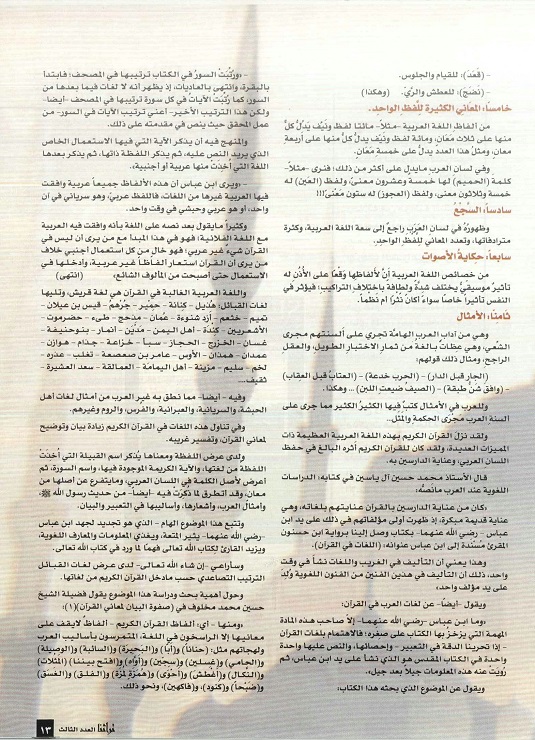 - (قَعَدَ)؛ للقيام والجلوس.
- (نَضَحَ)؛ للعطش والرّيّ. (وهكذا)
خامسًا: المعاني الكثيرة للّفظ الواحد.
من ألفاظ اللغة العربية -مثلاً- مائتا لفظ ونَيّف يَدلُّ كلٌّ
منها على ثلاث معَان، ومائة لفظ ونَيّف يدلُّ كلٌّ منها على أربعة
معَان، ومثل هذا العدد يدلُّ على خمسة معَان.
وفي لسان العرب مايدل على أكثر من ذلك؛ فنرى -مثلاً-
كلمة (الحميم) لها خمسة وعشرون معنىً، ولفظ (العين) له
خمسة وثلاثون معنى، ولفظ (العجوز) له ستون معنىً!!!
سادسًا: السَّجْعُ
وظهورُهُ في لسان العَرَب راجعٌ إلى سعة اللغة العربية، وكثرة
مترادفاتها، وتعدد المعاني للفظ الواحد.
سابعًا: حكايةُ الأصوات
من خصائص اللغة العربية أنَّ لألفاظها وَقْعًا على الأُذُن له
تأثيرٌ موسيقيٌّ يختلف شدةً ولطافةً باختلاف التراكيب؛ فيؤثر في
النفس تأثيراً خاصاً سواءً أكان نَثراً أم نَظماً.
ثامنًا: الأمثال
وهي من آداب العرب الهامّة تجري على ألسنتهم مجرى
الشّعر، وهي عظاتٌ بالغةٌ من ثمار الاختبار الطويل، والعقل
الراجح، ومثال ذلك قولهم:
(الجار قبل الدار) - (الحرب خدعة) - (العتابُ قبل العقاب)
- (وافق شنٌّ طبقة) - (الصيفَ ضيعتِ اللبن) ... وهكذا.
وللعرب في الأمثال كتبٌ فيها الكثيرُ الكثير مما جرى على
ألسنة العرب مجْرَى الحكمة والمَثَل..
ولقد نزل القرآن الكريم بهذه اللغة العربية العظيمة ذات
المميزات العديدة، ولقد كان للقرآن الكريم أثره البالغ في حفظ
اللسان العربي، وعناية الدارسين به.
قال الأستاذ محمد حسين آل ياسين في كتابه: الدراسات
اللغوية عند العرب مانصُّه:
«كان من عناية الدارسين بالقرآن عنايتهم بلغاته، وهي
عناية قديمة مبكرة، إذ ظهرت أولى مؤلفاتهم في ذلك على يد ابن
عباس - رضي الله عنهما- بكتاب وصل إلينا برواية ابن حسنون
المقرئ مسْندة إلى ابن عباس عنوانه، (اللغات في القرآن).
وهذا يعني أن التأليف في الغريب واللغات نشأ في وقت
واحد، ذلك أن التأليف في هذين الفنين من الفنون اللغوية وُلِدَ
على يد مؤلف واحد»
ويقول -أيضًا- عن لغات العرب في القرآن:
«وما ابن عباس -رضي الله عنهما- إلاّ صاحب هذه المادة
المهمة التي يزخر بها الكتاب على صغره؛ فالاهتمام بلغات القرآن
- إذا تحرينا الدقة في التعبير - وإحصائها، والنص عليها واحدة
واحدة في الكتاب المقدس هو الذي نشأ على يد ابن عباس، ثم
رُويَتْ عنه هذه المعلومات جيلاً بعد جيل».
ويقول عن الموضوع الذي بحثه هذا الكتاب:
- «ورُتِّبَتْ السورُ في الكتاب ترتيبها في المصحف؛ فابتدأ
بالبقرة، وانتهى بالعاديات، إذ يظهر أنه لا لغات فيما بعدها من
السور، كما رُتِّبَت الآياتُ في كل سورة ترتيبها في المصحف -أيضًا-
ولكن هذا الترتيب الأخير- أعني ترتيب الآيات في السور- من
عمل المحقق حيث ينص في مقدمته على ذلك.
والمنهج فيه أن يذكر الآية التي فيها الاستعمال الخاص
الذي يريد النص عليه، ثم يذكر اللفظة ذاتها، ثم يذكر بعدها
اللغة التي أُخِذَتْ منها عربية أو أجنبية.
-«ويرى ابن عباس أن هذه الألفاظ جميعاً عربية وافقت
فيها العربية غيرها من اللغات، فاللفظ عربيٌّ، وهو سرياني في آن
واحد، أو هو عربي وحبشي في وقت واحد.
وكثيراً مايقول بعد نصه على اللغة بأنه وافقت فيه العربية
مع اللغة الفلانية؛ فهو في هذا المبدأ مع من يرى أن ليس في
القرآن شيءٌ غير عربي؛ فهو خال من كل استعمال أجنبي خلاف
من يرى أن القرآن استعار ألفاظًا غير عربية، وأدخلها في
الاستعمال حتى أصبحت من المألوف الشائع» (انتهى)
واللغة العربية الغالبة في القرآن هي لغة قريش، وتليها
لغات القبائل: هُذَيل - كِنانة - حِمْيَر - جُرْهُم - قيس بن عيلان -
تميم - خثعم - أزد شنوءة - عُمان - مذحج - طيء - حضرموت -
الأشعريين - كِنْدة - أهل اليمن - مَدْيَن - أنمار - بنوحنيفة -
غسان - الخزرج - الحجاز - سبأ - خزاعة - جذام - هوازن -
عمدان - همدان - الأوس - عامر بن صعصعة - تغلب - عذره -
لخم - سليم - مزينة - أهل اليمامة - العمالقة - سعد العشيرة -
ثقيف...
وفيه -أيضا- مما نطق به غير العرب من أمثال لغات أهل
الحبشة، والسريانية، والعبرانية، والفرس، والروم وغيرهم.
وفي تناول هذه اللغات في القرآن الكريم زيادة بيان وتوضيح
لمعاني القرآن، وتفسير غريبه.
ولدى عرض اللفظة ومعناها يُذكر اسم القبيلة التي أُخِذَتْ
اللفظة من لغتها، والآية الكريمة الموجودة فيها، واسم السورة، ثم
أعرض لأصول الكلمة في اللسان العربي، ومايتفرع عن أصلها من
معان، وقد أتطرق لما ذُكِرَتْ فيه -أيضاً- من حديث رسول الله ﷺ،
وأمثال العرب، وأشعارها، وأساليبها في التعبير والبيان.
وتتبع هذا الموضوع الهام - الذي هو تجديد لجهد ابن عباس
-رضي الله عنهما- يثير المتعة، ويغذي المعلومات والمعارف اللغوية،
ويزيد القارئ لكتاب الله تعالى فهمًا لما ورد في كتاب الله تعالى.
وسأراعي -إن شاء الله تعالى- لدى عرض لغات القبائل
الترتيب التصاعدي حسب مادخل القرآن الكريم من لغاتها.
وحول أهمية بحث ودراسة هذا الموضوع يقول فضيلة الشيخ
حسين محمد مخلوف في (صفوة البيان لمعاني القرآن)(١):
«ومنها - أي: ألفاظ القرآن الكريم - ألفاظ لايقف على
معانيها إلا الراسخون في اللغة، المتمرسون بأساليب العرب
ولهجاتهم مثل: (حناناً) و(أبا) و(البحيرة) و(السائبة) و(الوصيلة)
و(الحامي) و(غسلين) و(سجين) و(أواه) و(افتح بيننا) (المثلات)
و(النكال) و(أغطش) و(أحوى) و(همزة لمزة) و(الفلق) و(الغسق)
و(ضبحاً) و(كنود)، و(فاكهين)، ونحو ذلك.
العدد الثالث ١٣